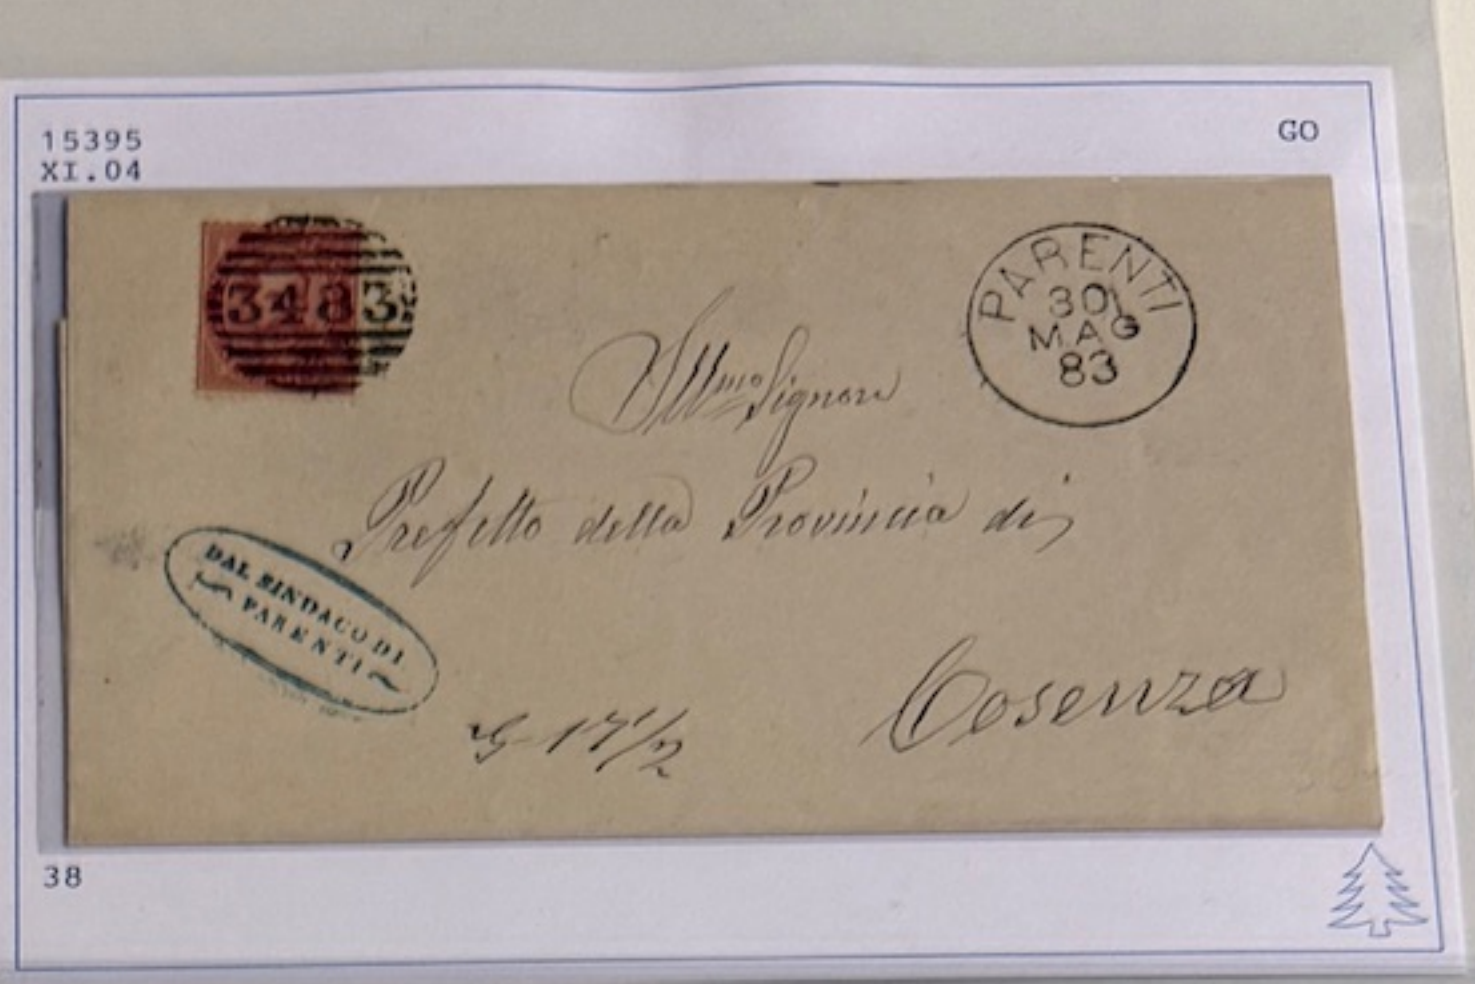 15395
XI.04
GO
3483
PARENTI
30
MAG
83
Ill.mo Signore
Prefetto della Provincia di
Cosenza
DAL SINDACO DI
PARENTI
17 1/2
38